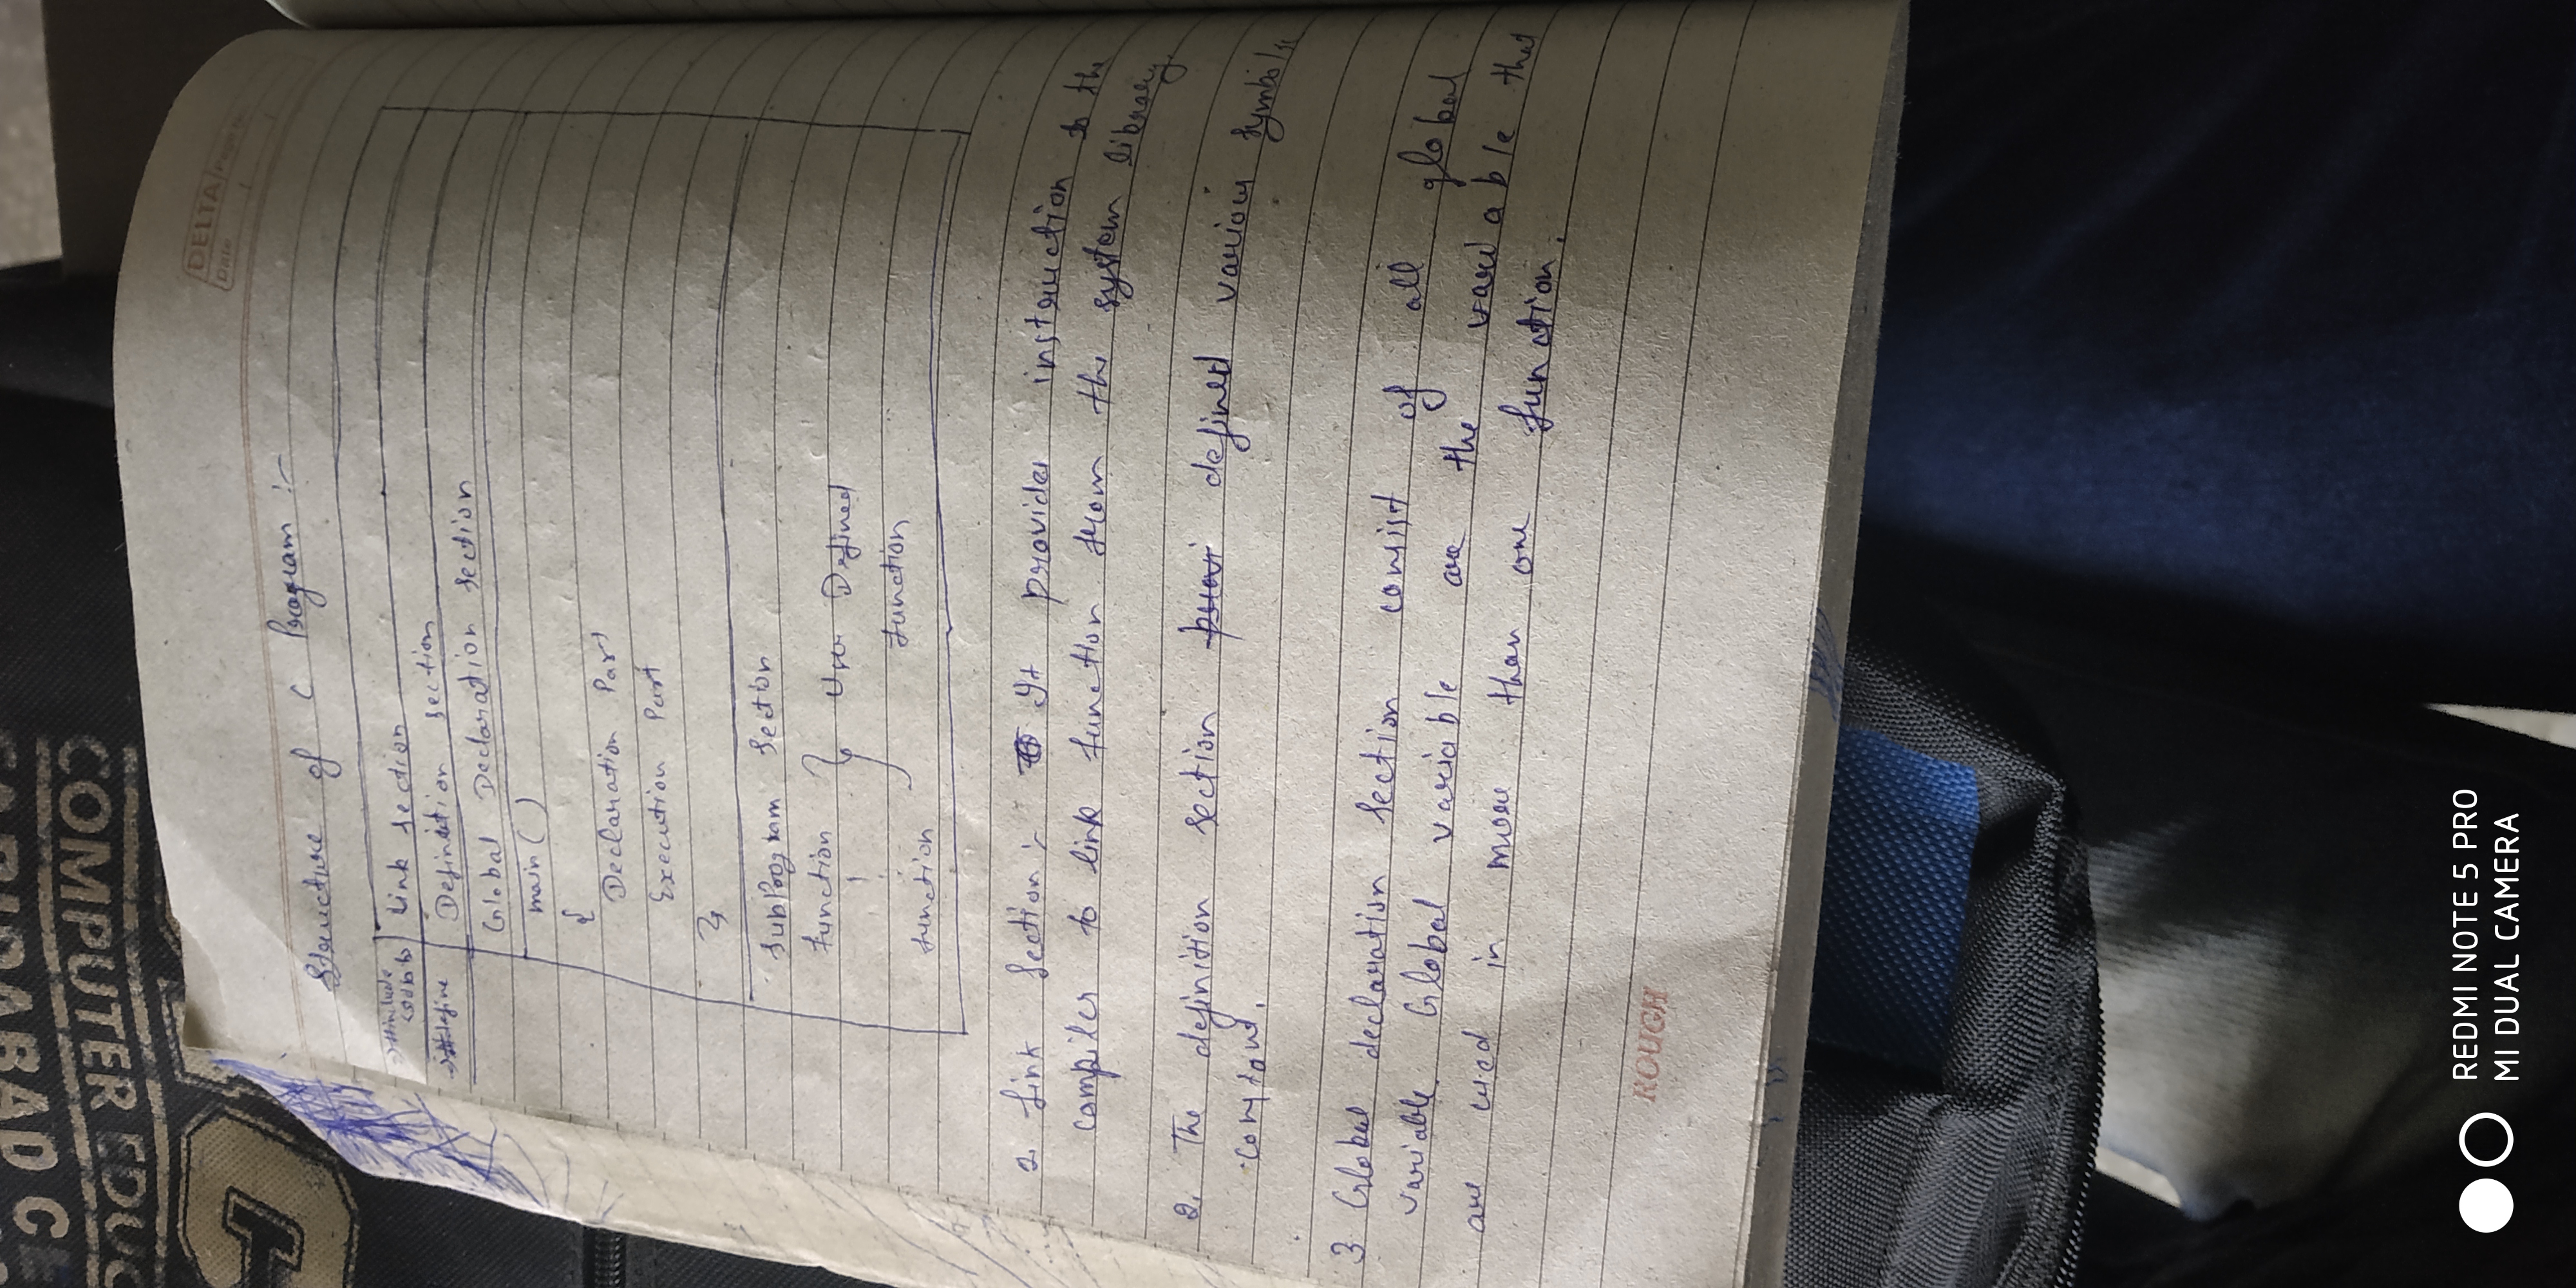 FARIDABAD CE
COMPUTER EDUC
DELTA Page No.
Date
Structure of C Program :-
→ #include Link Section
→ #define Definition Section
Global Declaration Section
main ( )
{
Declaration Part
Execution Part
}
SubProgram Section
Function } User Defined
Function
Function
1. Link Section :- It provides instruction to the
compiler to link function from the system library.
2. The definition section defined various symbolic
constant.
3 Global declaration section consist of all global
variable. Global variable are the variable that
are used in more than one function.
ROUGH
REDMI NOTE 5 PRO
MI DUAL CAMERA